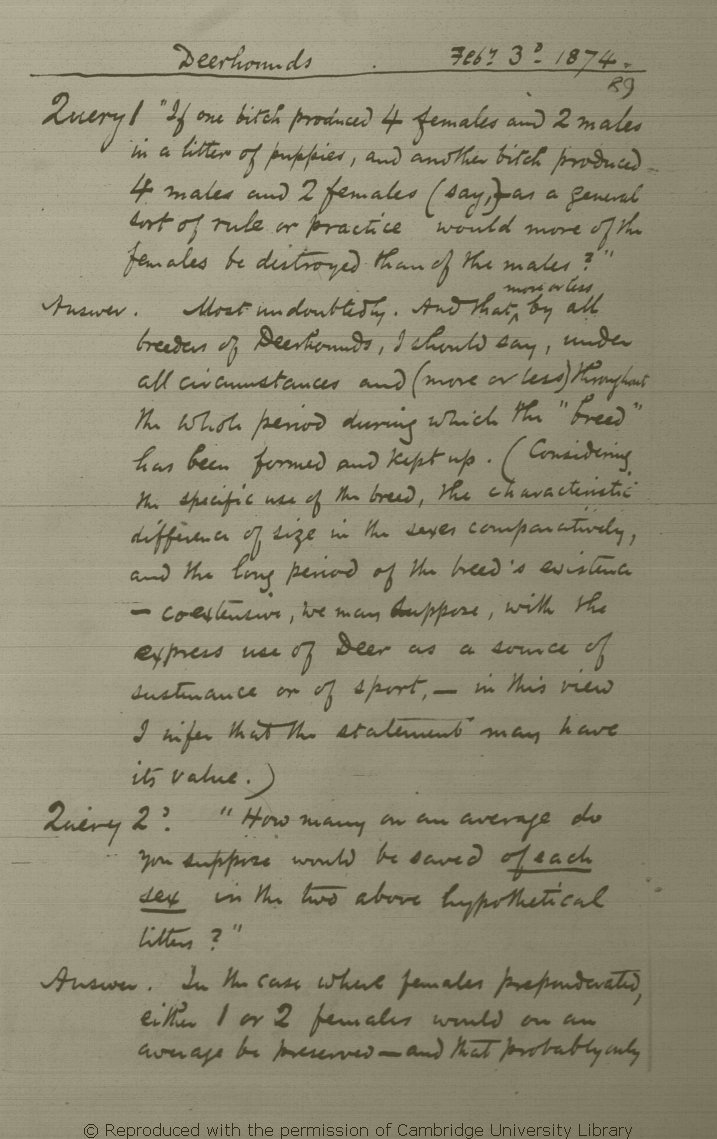 Deerhounds . Feby 3d 1874.
89
Query 1 "If one bitch produced 4 females and 2 males
in a litter of puppies, and another bitch produced
4 males and 2 females (say,) as a general
sort of rule or practice would more of the
females be destroyed than of the males?"
more or less
Answer. Most undoubtedly. And that, by all
breeders of Deerhounds, I should say, under
all circumstances and (more or less) throughout
the whole period during which the "breed"
has been formed and kept up. (Considering
the specific use of the breed, the characteristic
difference of size in the sexes comparatively,
and the long period of the breed's existence
— coextensive, we may suppose, with the
express use of Deer as a source of
sustenance or of sport, — in this view
I infer that the statement may have
its value.)
Query 2d. "How many on an average do
you suppose would be saved of each
sex in the two above hypothetical
litters?"
Answer. In the case where females preponderated,
either 1 or 2 females would on an
average be preserved — and that probably only
© Reproduced with the permission of Cambridge University Library